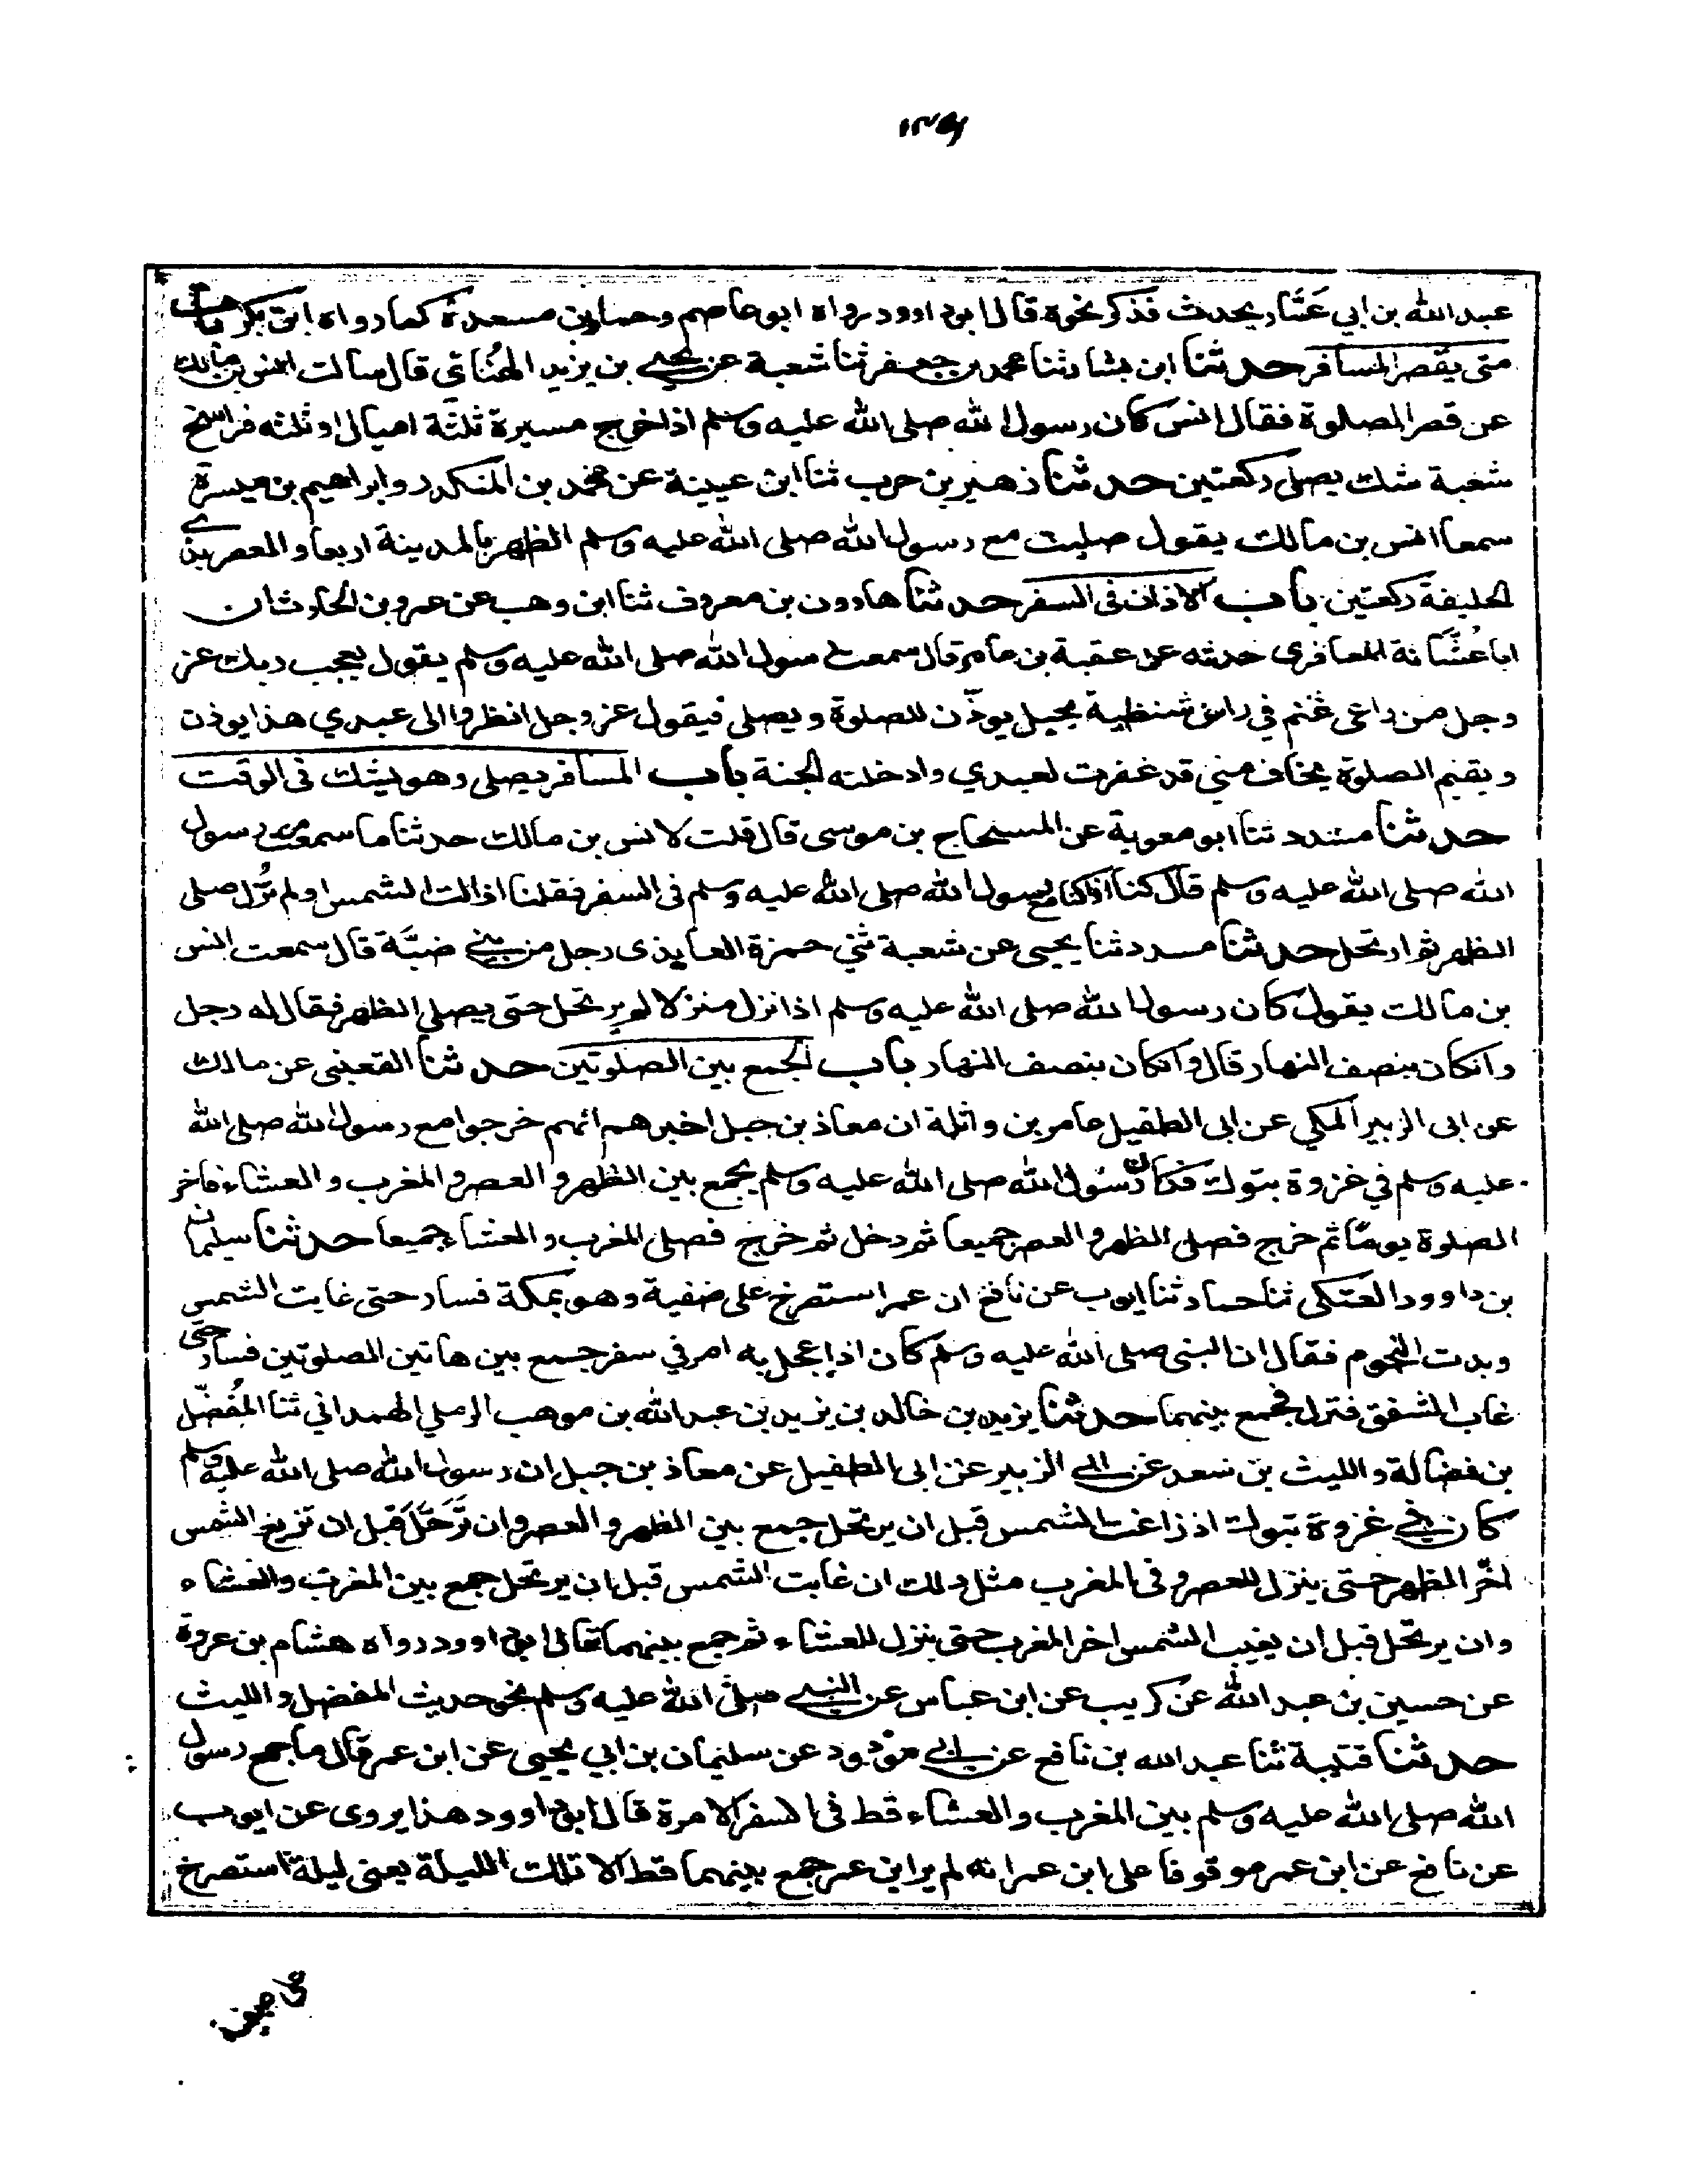 ١٣٥٩
عبد الله بن ابي عمار يحدث فذكر نحوه قال ابو داوود رواه ابو عاصم وحماد بن مسعدة كما رواه ابن بكر باب
متى يقصر المسافر حدثنا ابن بشار ثنا محمد بن جعفر ثنا شعبة عن يحيى بن يزيد الهنائي قال سالت انس بن مالك
عن قصر الصلوة فقال انس كان رسول الله صلى الله عليه وسلم اذا خرج مسيرة ثلثة اميال او ثلثه فراسخ
شعبة شك يصلى ركعتين حدثنا زهير بن حرب ثنا ابن عيينة عن محمد بن المنكدر وابراهيم بن ميسرة
سمعا انس بن مالك يقول صليت مع رسول الله صلى الله عليه وسلم الظهر بالمدينة اربعا والعصر بذي
الحليفة ركعتين باب الاذان فى السفر حدثنا هارون بن معروف ثنا ابن وهب عن عمرو بن الحارث ان
ابا عشانة المعافرى حدثه عن عقبة بن عامر قال سمعت رسول الله صلى الله عليه وسلم يقول يعجب ربك عز
وجل من راعى غنم في راس شظية بجبل يوذن للصلوة ويصلى فيقول عز وجل انظروا الى عبدي هذا يوذن
ويقيم الصلوة يخاف مني قد غفرت لعبدي وادخلته الجنة باب المسافر يصلى وهو يشك فى الوقت
حدثنا مسدد ثنا ابو معوية عن المسحاج بن موسى قال قلت لانس بن مالك حدثنا ما سمعت من رسول
الله صلى الله عليه وسلم قال كنا اذا كنا مع رسول الله صلى الله عليه وسلم فى السفر فقلنا ازالت الشمس او لم تزل صلى
الظهر ثم ارتحل حدثنا مسدد ثنا يحيى عن شعبة ثني حمزة العايذى رجل من بني ضبة قال سمعت انس
بن مالك يقول كان رسول الله صلى الله عليه وسلم اذا نزل منزلا لم يرتحل حتى يصلي الظهر فقال له رجل
وان كان بنصف النهار قال وان كان بنصف النهار باب الجمع بين الصلوتين حدثنا القعنبى عن مالك
عن ابى الزبير المكي عن ابى الطفيل عامر بن واثلة ان معاذ بن جبل اخبرهم انهم خرجوا مع رسول الله صلى الله
عليه وسلم في غزوة تبوك فكان رسول الله صلى الله عليه وسلم يجمع بين الظهر والعصر والمغرب والعشاء فاخر
الصلوة يوما ثم خرج فصلى الظهر والعصر جميعا ثم دخل ثم خرج فصلى المغرب والعشاء جميعا حدثنا سليمان
بن داوود العتكى ثنا حماد ثنا ايوب عن نافع ان عمر استصرخ على صفية وهو بمكة فسار حتى غابت الشمس
وبدت النجوم فقال ان النبى صلى الله عليه وسلم كان اذا عجل به امر في سفر جمع بين هاتين الصلوتين فسار حتى
غاب الشفق فنزل فجمع بينهما حدثنا يزيد بن خالد بن يزيد بن عبد الله بن موهب الرملي الهمداني ثنا المفضل
بن فضالة والليث بن سعد عن ابي الزبير عن ابى الطفيل عن معاذ بن جبل ان رسول الله صلى الله عليه وسلم
كان في غزوة تبوك اذ زاغت الشمس قبل ان يرتحل جمع بين الظهر والعصر وان ترحل قبل ان تزيغ الشمس
اخر الظهر حتى ينزل للعصر وفى المغرب مثل ذلك ان غابت الشمس قبل ان يرتحل جمع بين المغرب والعشاء
وان يرتحل قبل ان يغيب الشمس اخر المغرب حتى ينزل للعشاء ثم جمع بينهما قال ابو داوود رواه هشام بن عروة
عن حسين بن عبد الله عن كريب عن ابن عباس عن النبي صلى الله عليه وسلم نحو حديث المفضل والليث
حدثنا قتيبة ثنا عبد الله بن نافع عن ابي مودود عن سليمان بن ابي يحيى عن ابن عمر قال ما جمع رسول
الله صلى الله عليه وسلم بين المغرب والعشاء قط فى السفر الا مرة قال ابو داوود هذا يروى عن ايوب
عن نافع عن ابن عمر موقوفا على ابن عمر انه لم ير ابن عمر جمع بينهما قط الا تلك الليلة يعنى ليلة استصرخ
على صفية